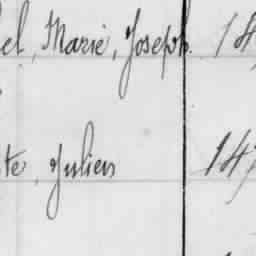 el, Marie, Joseph. 14
te, Julien 147